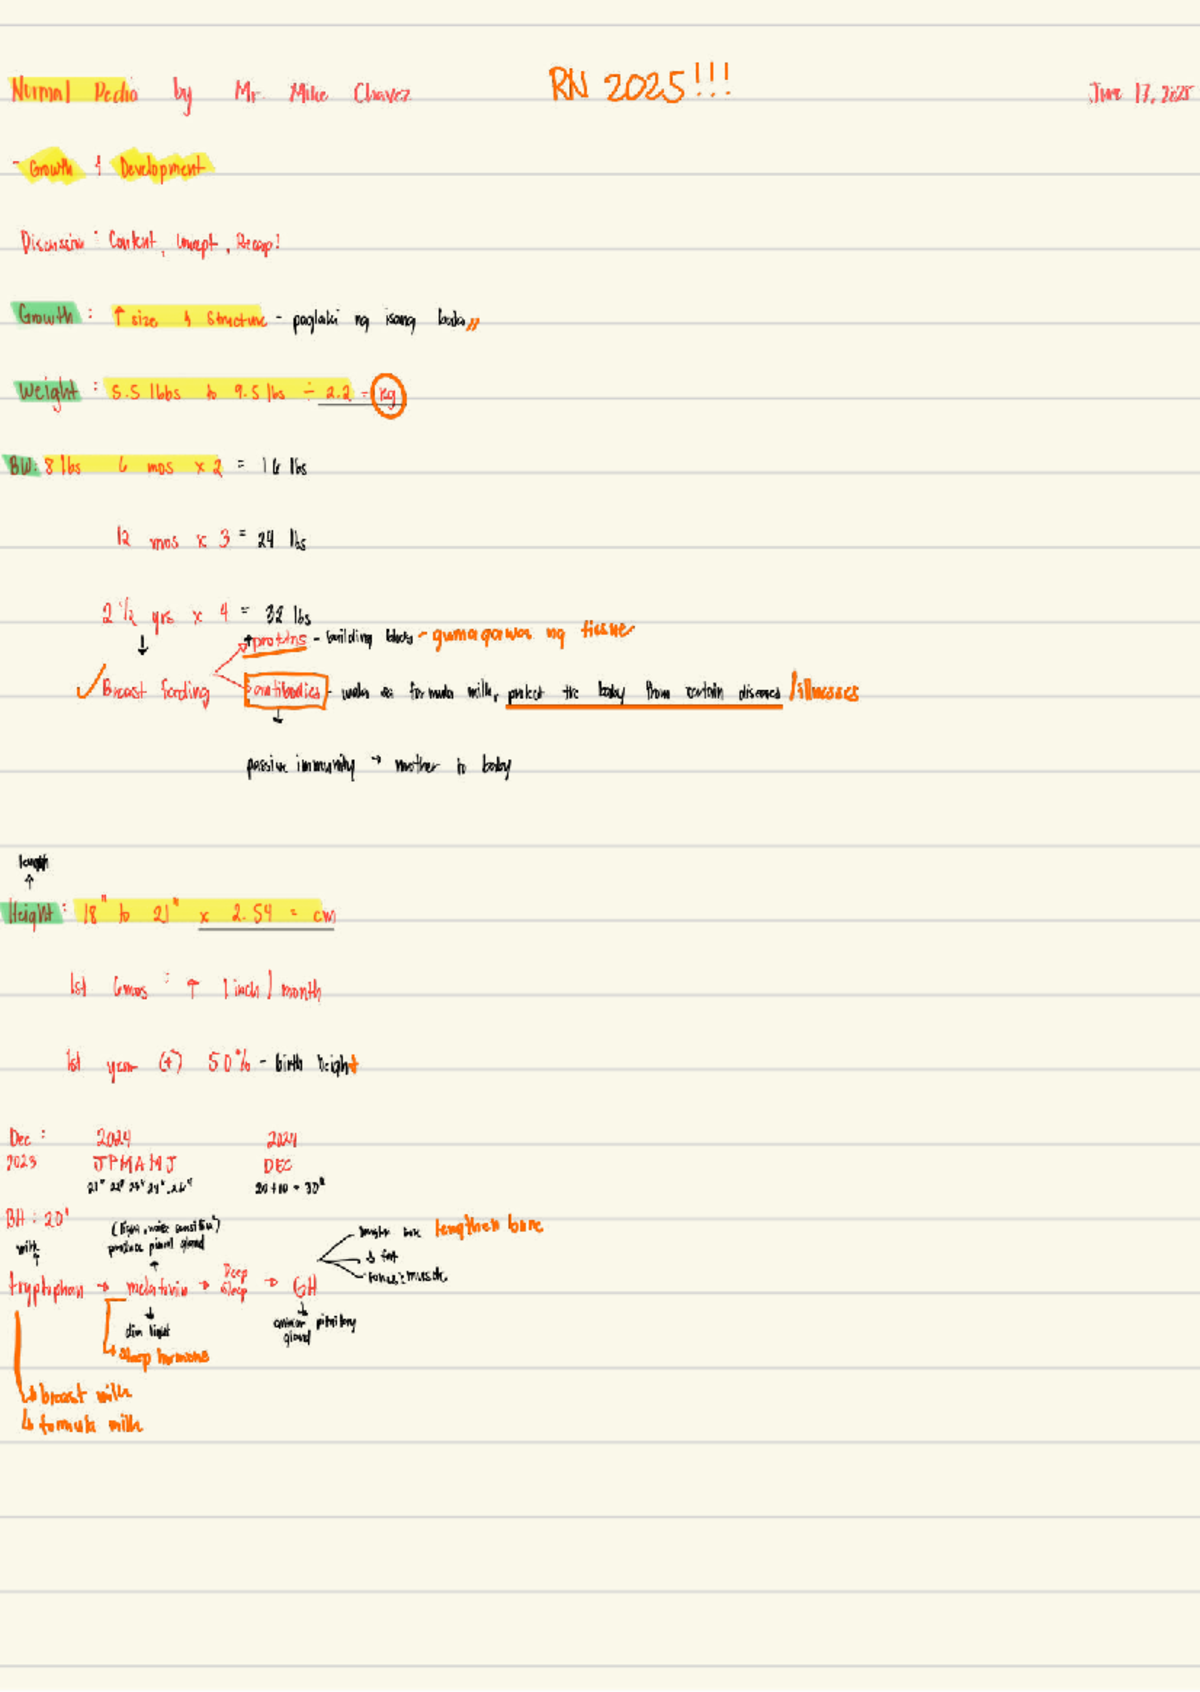 Normal Pedia by Mr. Mike Chavez RN 2025!!! June 17, 2025
- Growth & Development
Discussion : Content, Concept, Recap!
Growth : ↑ size & structure - paglaki ng isang bata
Weight : 5.5 lbbs to 9.5 lbs ÷ 2.2 = kg
BW: 8 lbs 6 mos x 2 = 16 lbs
12 mos x 3 = 24 lbs
2 1/2 yrs x 4 = 32 lbs
↓
↑ proteins - building blocks - gumagawa ng tissue
✓ Breast feeding antibodies - wala sa formula milk, protect the baby from certain diseases /illnesses
↓
passive immunity → mother to baby
length
↑
Height : 18" to 21" x 2.54 = cm
1st 6mos : ↑ 1 inch / month
1st year (+) 50% - birth height
Dec : 2024 2024
2023 JPMAMJ DEC
20 + 10 = 30"
BH : 20"
lengthen bone
milk produce pineal gland
↑ ↑ ↓ fat
tryptophan → melatonin → Deep Sleep → GH
muscle
↓ ↓
dim light pituitary gland
↳ sleep hormone
↳ breast milk
↳ formula milk